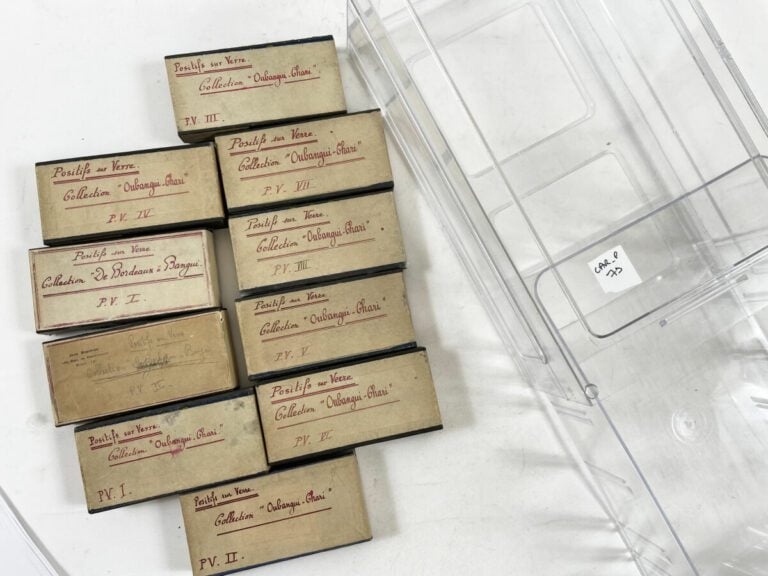 Positifs sur Verre.
Collection "Oubangui-Chari"
P.V. III
Positifs sur Verre.
Collection "Oubangui-Chari"
P.V. VII
Positifs sur Verre.
Collection "Oubangui-Chari"
P.V. IV
Positifs sur Verre.
Collection "Oubangui-Chari"
P.V. VIII
Positifs sur Verre.
Collection "De Bordeaux à Bangui.
P.V. I.
Positifs sur Verre.
Collection "Oubangui-Chari"
P.V. V
Positifs sur Verre.
Collection
P.V. II.
Positifs sur Verre.
Collection "Oubangui-Chari"
P.V. VI
Positifs sur Verre.
Collection "Oubangui-Chari"
P.V. I.
Positifs sur Verre.
Collection "Oubangui-Chari"
P.V. II.
CAR_P
73